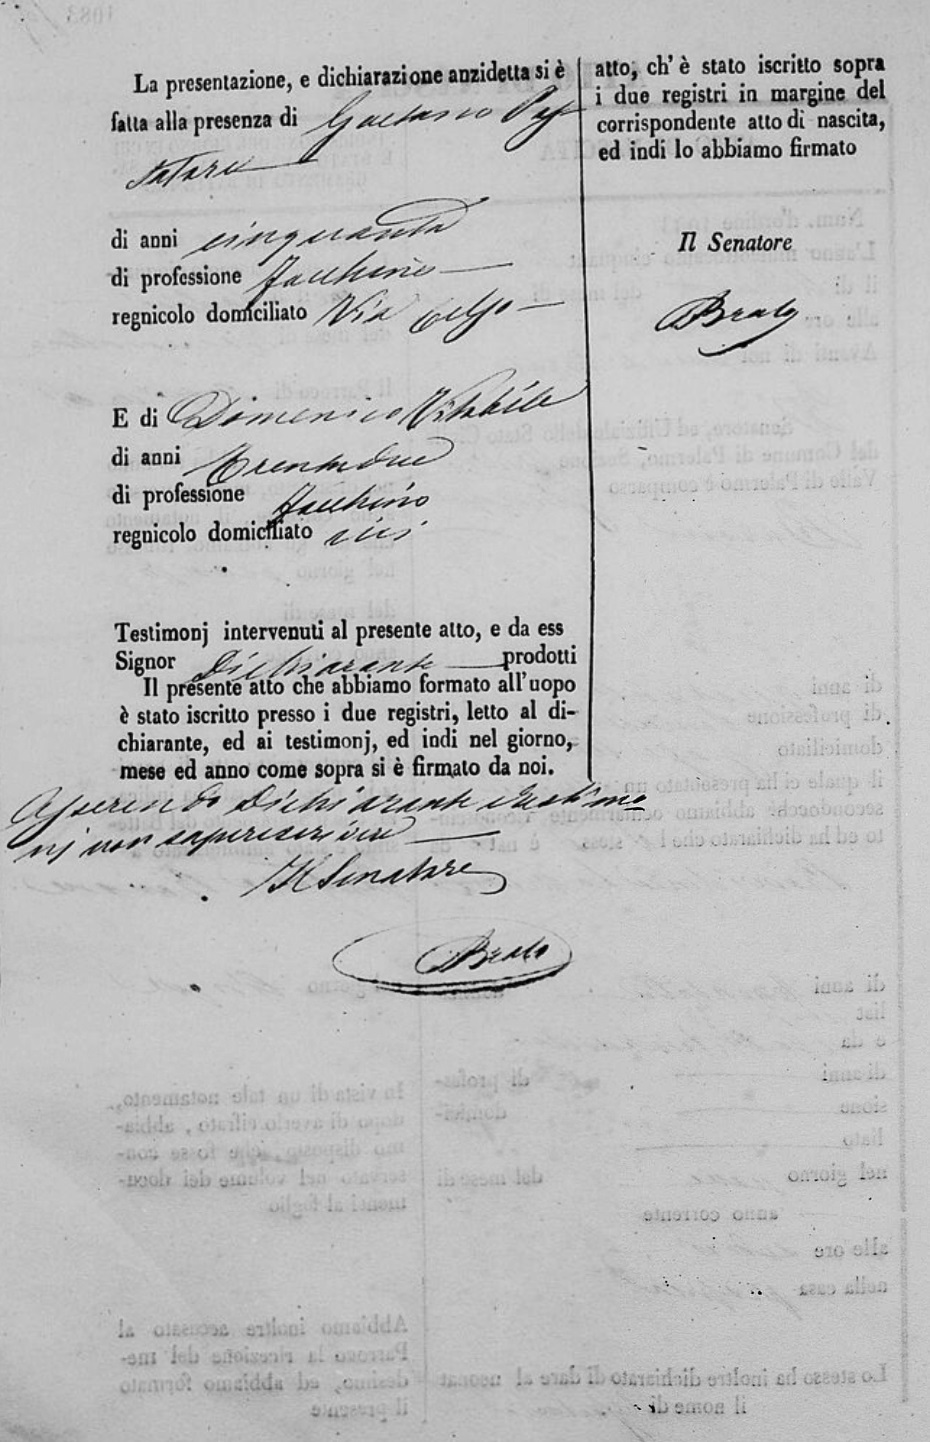 La presentazione, e dichiarazione anzidetta si è
fatta alla presenza di Gaetano
di anni cinquanta
di professione Facchino
regnicolo domiciliato Via Celso
E di Domenico Vitabile
di anni trentadue
di professione Facchino
regnicolo domiciliato ivi
Testimonj intervenuti al presente atto, e da ess
Signor Dichiarante prodotti
Il presente atto che abbiamo formato all'uopo
è stato iscritto presso i due registri, letto al di-
chiarante, ed ai testimonj, ed indi nel giorno,
mese ed anno come sopra si è firmato da noi.
Asserendo Dichiarante e testimo
nj non saper scrivere
Il Senatore
atto, ch' è stato iscritto sopra
i due registri in margine del
corrispondente atto di nascita,
ed indi lo abbiamo firmato
Il Senatore